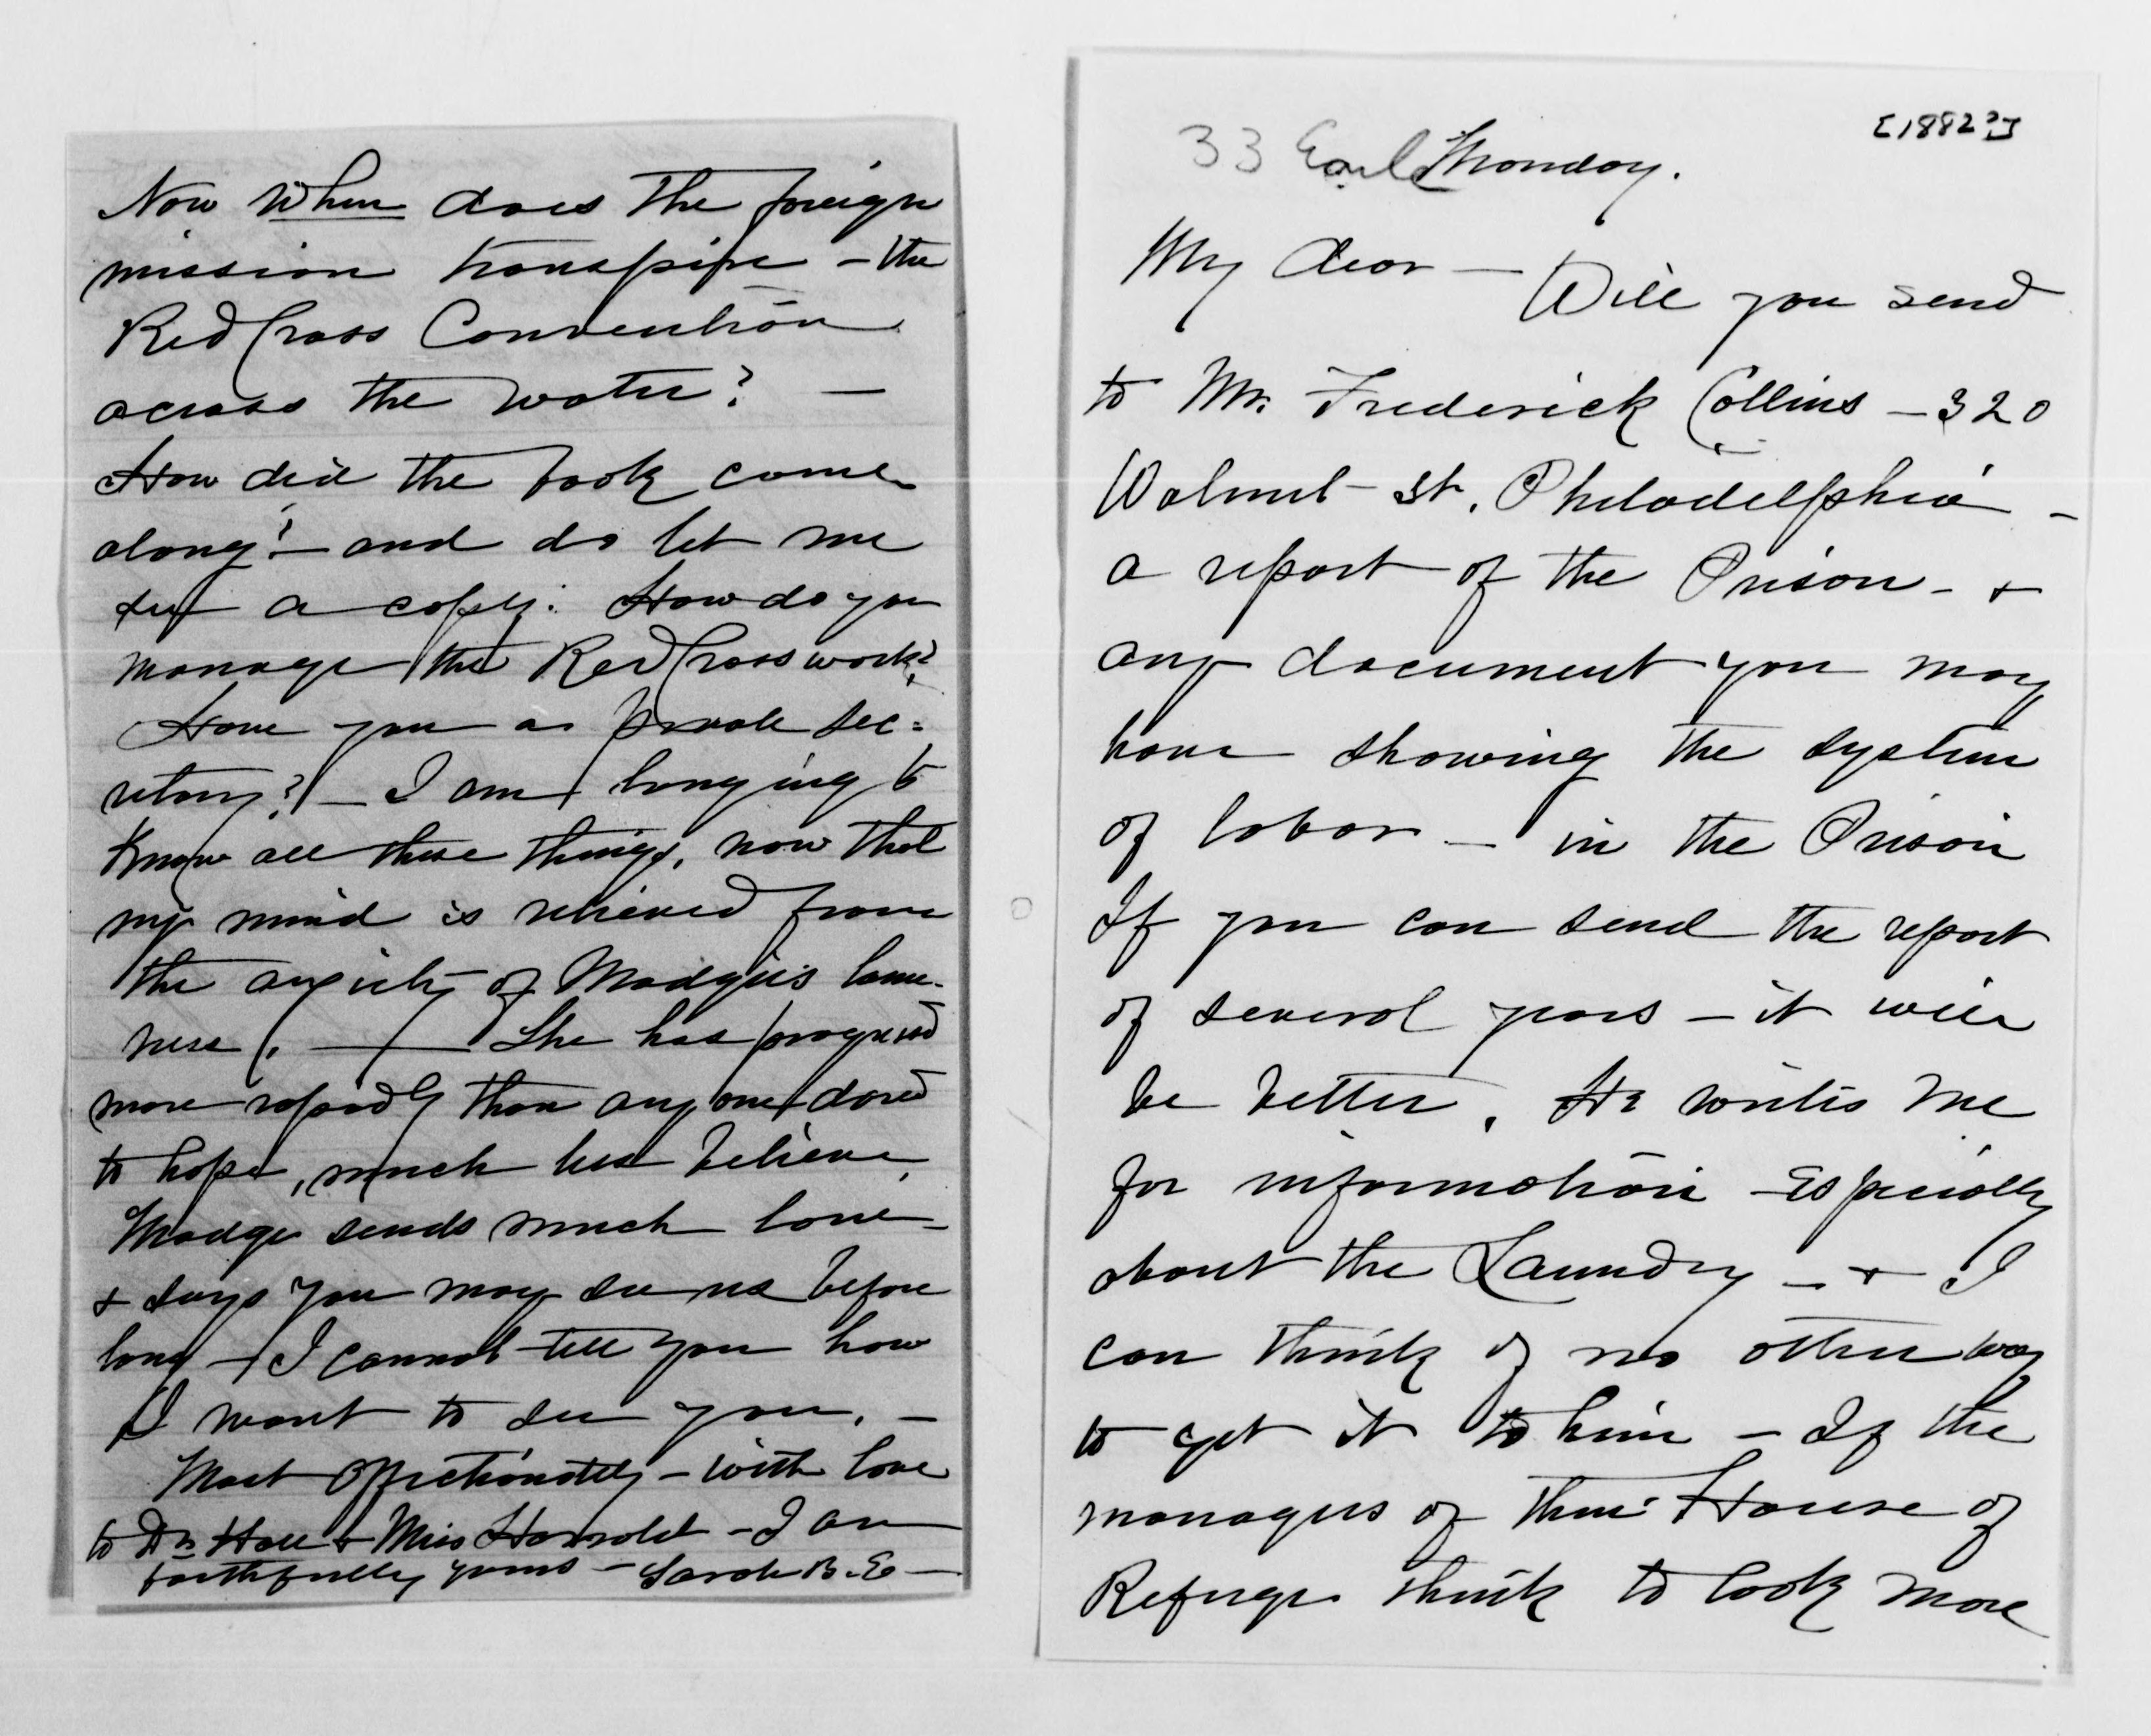 Now when does the foreign
mission transpire - the
Red Cross Convention
across the water? —
How did the book come
along? - and do let me
see a copy. How do you
manage the Red Cross work?
Have you a private sec=
retary? - I am longing to
know all these things, now that
my mind is relieved from
the anxiety of Madgie's lame-
ness. — She has progressed
more rapidly than any one dared
to hope, much less believe,
Madge sends much love -
+ says you may see us before
long - I cannot tell you how
I want to see you. -
Most affectionately - with love
to Dr Hall + Miss Harrold - I am
faithfully yours - Sarah B. E —
[1882?]
33 Earle Monday.
My dear — Will you send
to Mr. Frederick Collins - 320
Walnut St. Philadelphia -
a report of the Prison - +
any document you may
have showing the system
of labor - in the Prison
If you can send the report
of several years - it will
be better. He writes me
for information especially
about the Laundry - + I
can think of no other way
to get it to him - If the
managers of their House of
Refuge think to look more